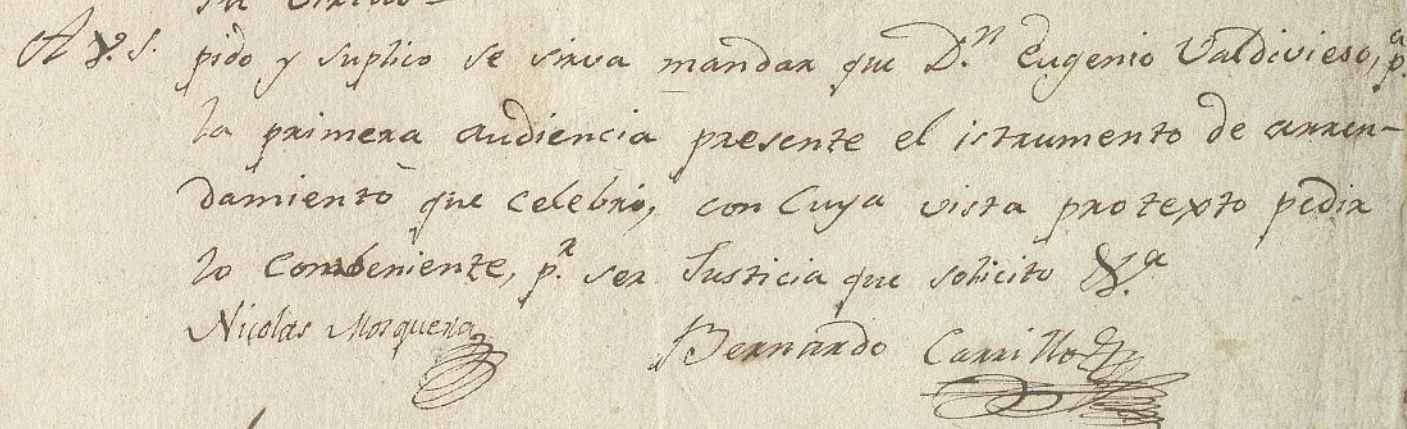 su virtud =
A V. S. pido y suplico se sirva mandar que D.n Eugenio Valdivieso, p.a
la primera audiencia presente el istrumento de arren-
damiento que celebró, con cuya vista protexto pedir
lo combeniente, p.r ser Justicia que solicito &.a
Nicolas Mosquera
Bernardo Carrillo